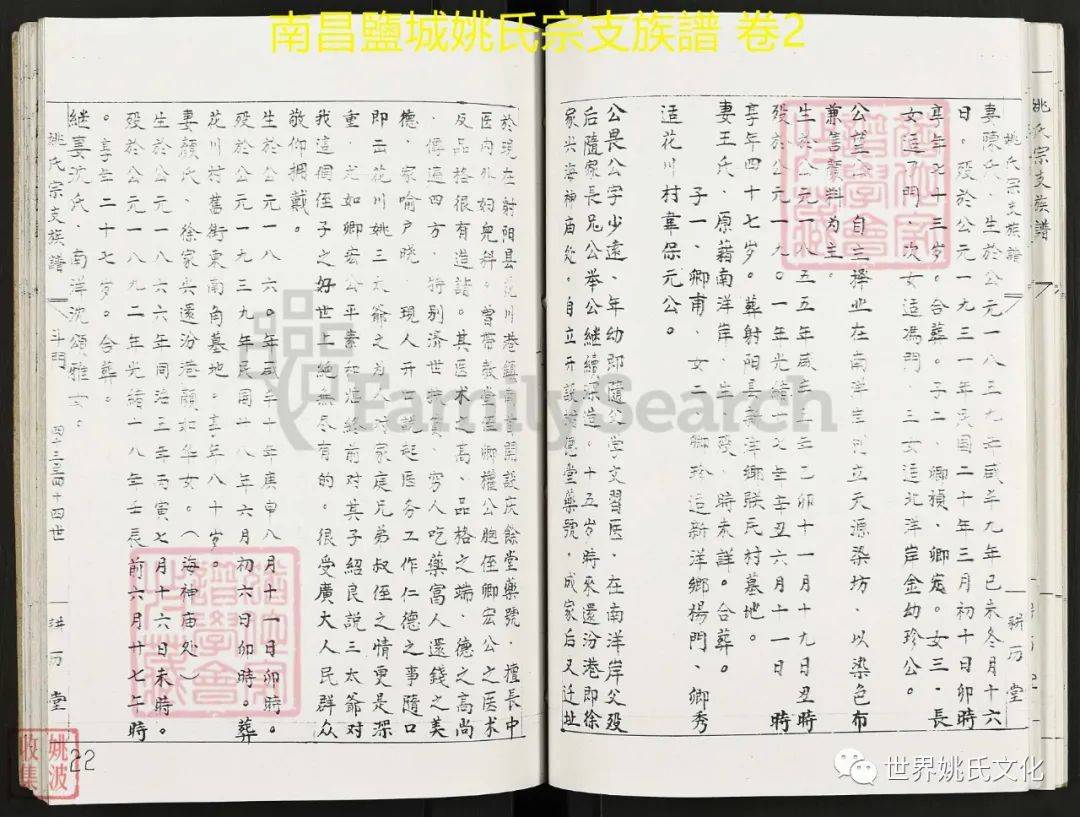 南昌鹽城姚氏宗支族譜 卷2
姚氏宗支族譜
耕历堂
妻陳氏．生於公元一八三九年咸丰九年已未冬月十六
日．殁於公元一九三一年民国二十年三月初十日卯時
享年七十三岁。合葬。子二．卿禎．卿宏。女三．長
女适丁門 次女适馮門 三女适北洋岸金幼珍公。
公 自立择业在南洋岸 立天源染坊．以染色布
兼售顏料为主。
生於公元一八五五年咸丰五年乙卯十一月十九日丑時
殁於公元一九〇一年光緒廿七年辛丑六月十一日 時
享年四十七岁。葬射阳县新洋鄉联民村墓地。
妻王氏．原籍南洋岸．生．殁．時未詳。合葬。
子一．卿甫．女二．卿珍适新洋鄉楊門．卿秀
适花川村韋保元公。
公畏公字少遠．年幼即隨父学文習医．在南洋岸父殁
后隨家長兄公举公継續深造．十五岁時來還汾港即徐
家兴海神庙处．自立开設 德堂藥號．成家后又迁址
於現在射阳县花川港鎮南 開設庆餘堂藥號．擅長中
医内外妇兒科。曾帶教堂 卿權公胞侄卿宏公之医术
反品格很有造詣。其医术之高．品格之端．德之高尚
．傳遍四方．特别济世扶貧．穷人吃藥富人還錢之美
德．家喻户晓 現人开口説起医务工作仁德之事隨口
即云花川姚三太爺之为人对家庭兄弟叔侄之情更是深
重．尤如卿宏公平素和 終前对其子紹良説三太爺对
我這個侄子之好世上絶無尽有的。很受廣大人民群众
敬仰拥戴。
生於公元一八六〇年咸丰十年庚申八月十一日卯時。
殁於公元一九三九年民国廿八年六月初六日卯時。葬
花川村舊街東南角墓地。享年八十岁。
妻顏氏．徐家兴還汾港顏如华女。（海神庙处）
生於公元一八六六年同治三年丙寅七月十六日未時。
殁於公元一八九二年光緒一八年壬辰前六月廿七午時
。享年二十七岁。合葬。
継妻沈氏．南洋沈頌雅女．
姚氏宗支族譜
斗門
四十三至四十四世
耕历堂
22
姚波
收集
FamilySearch
世界姚氏文化